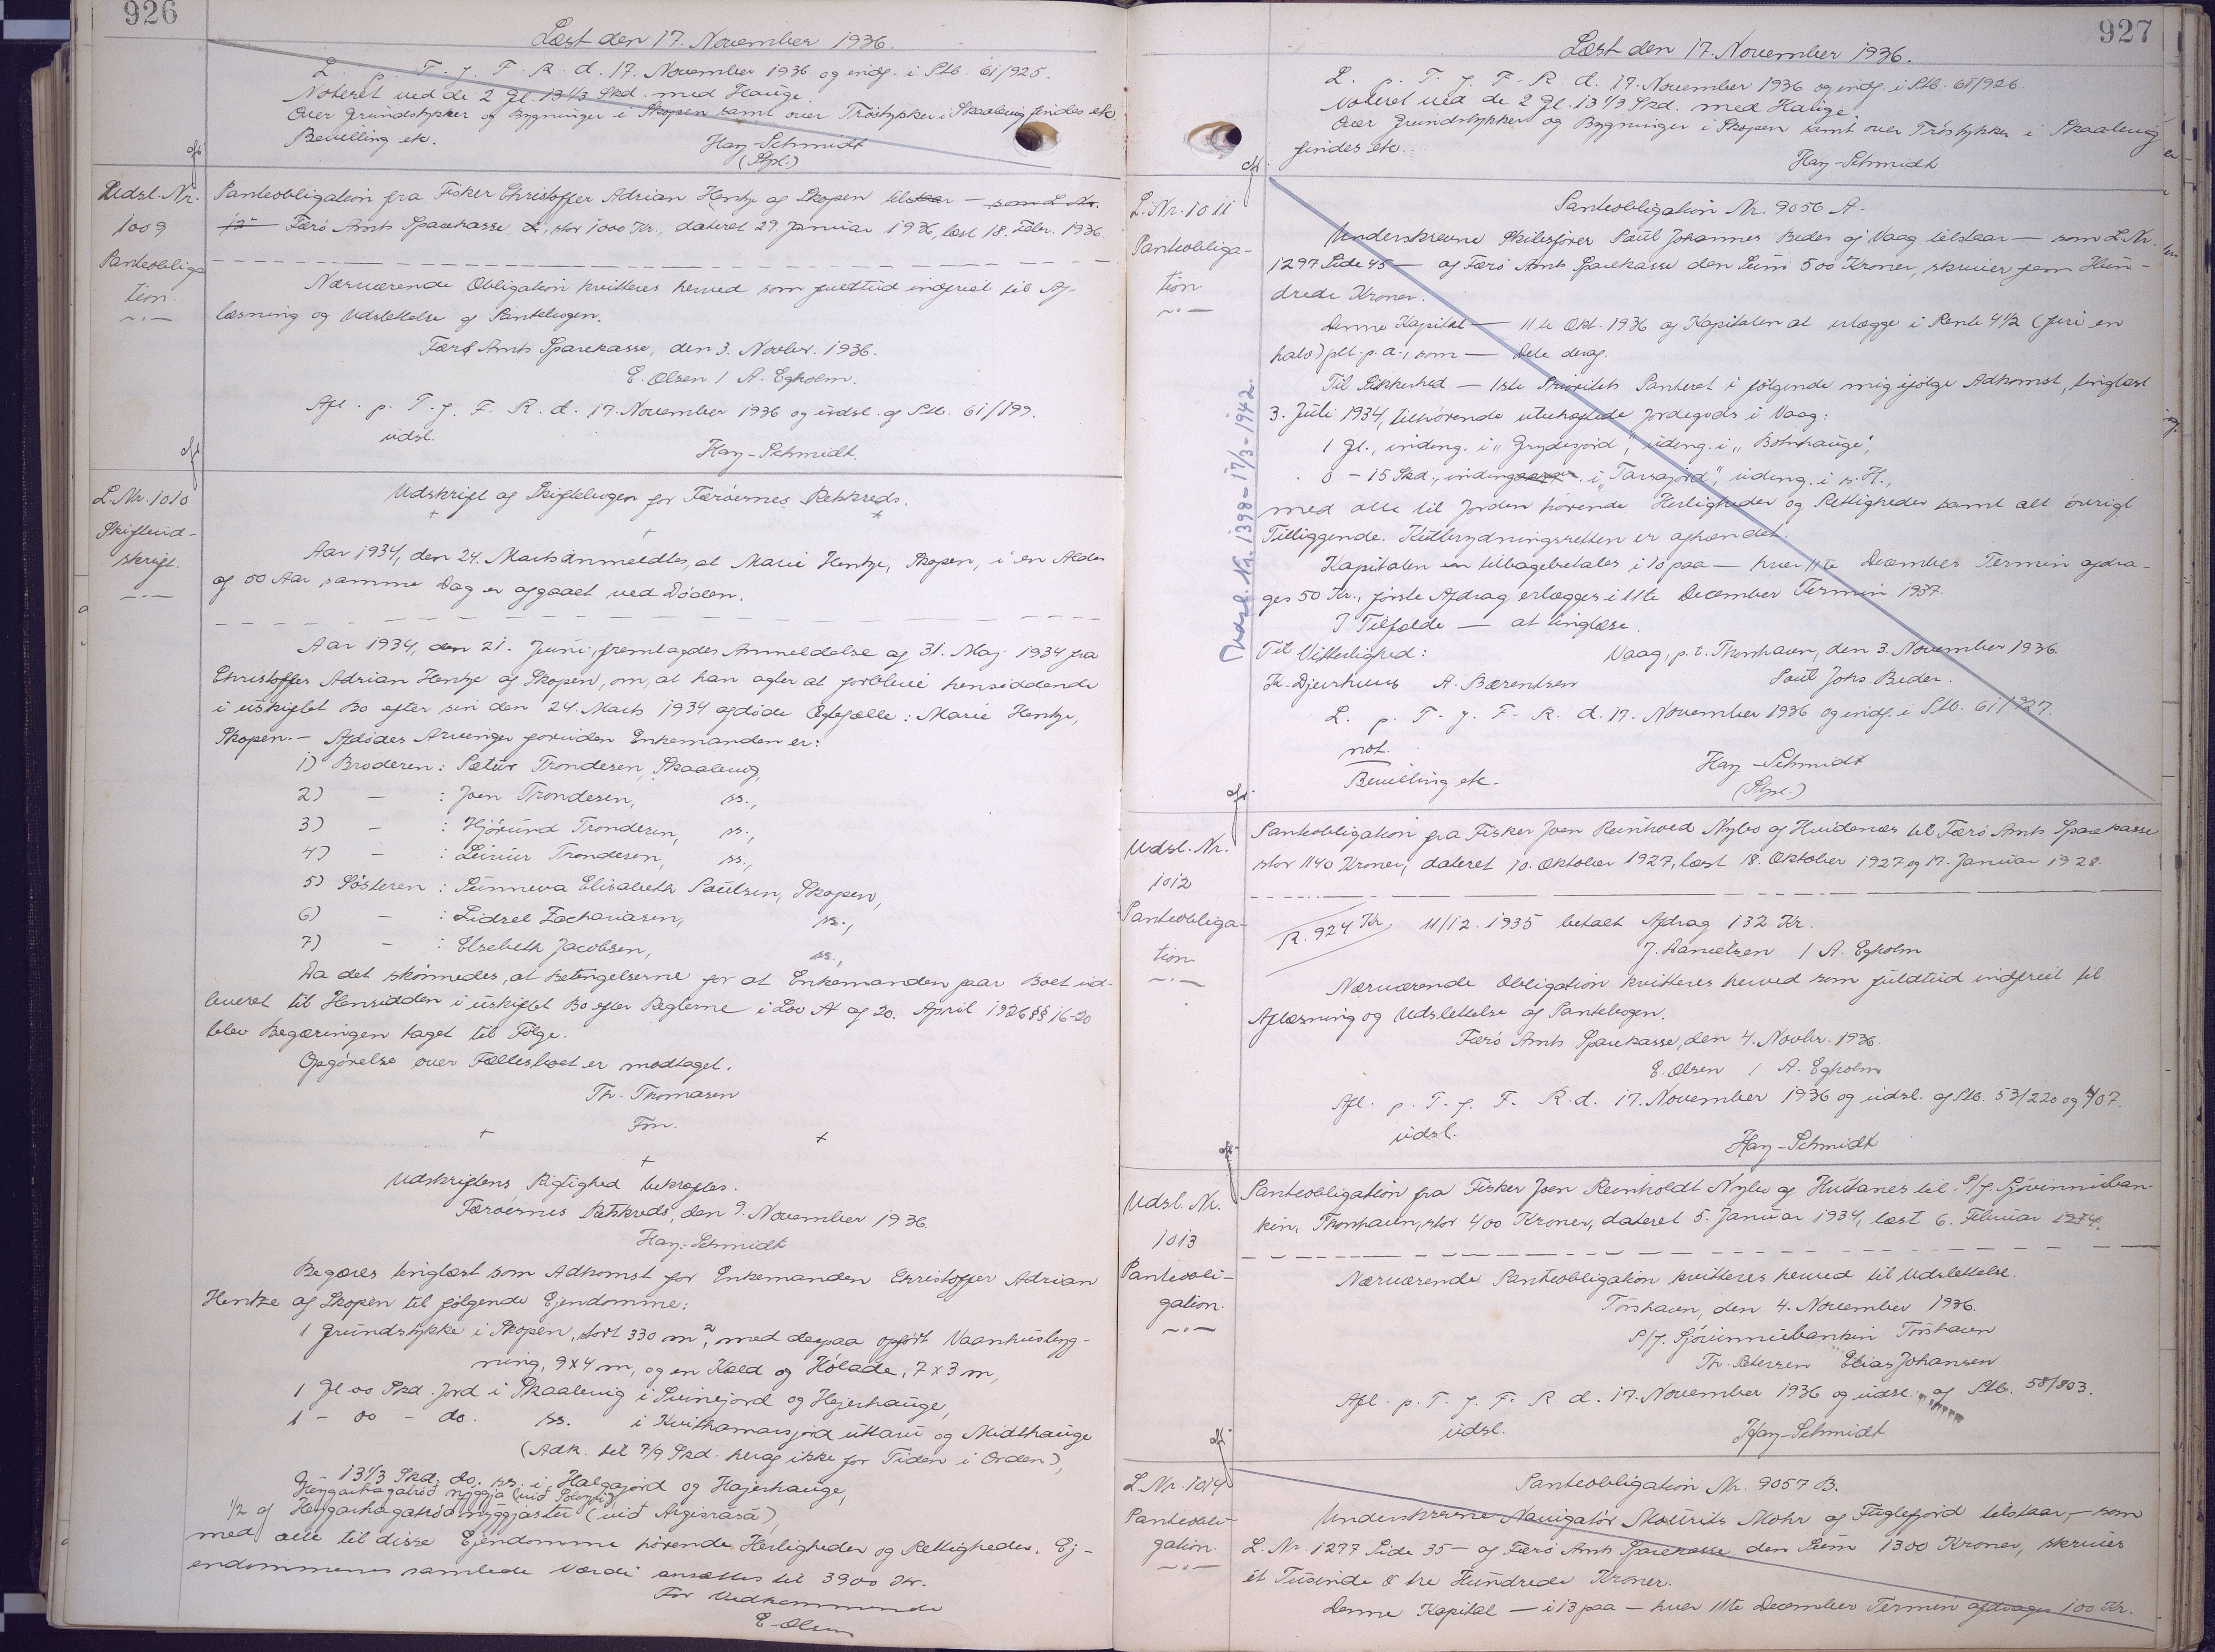 926
Læst den 17. November 1936.
L. p. T. f. F. R. d. 17. November 1936 og indf. i Skb. 61/925.
Noteret ved de 2 Gl. 13 1/3 Skd. med Hauge.
Over Grundstykker og Bygninger i Skopen samt over Tróstykker i Skaalevig findes ek.
Bevilling ek.
Hay-Schmidt
(Stpl.)
Udsl. Nr.
1009
Panteobliga
tion.
Panteobligation fra Fisker Christoffer Adrian Hentze af Skopen tilstaar — som L. Nr.
Færø Amts Sparekasse, stor 1000 Kr., dateret 29. Januar 1936, læst 18. Febr. 1936.
Nærværende Obligation kvitteres herved som fuldtud indfriet til Af-
læsning og Udslettelse af Pantebogen.
Færø Amts Sparekasse, den 3. Novbr. 1936.
E. Olsen / A. Egholm.
Afl. p. T. f. F. R. d. 17. November 1936 og udsl. af Skb. 61/199.
udsl.
Hay-Schmidt.
L. Nr. 1010
Skifteud-
skrift.
Udskrift af Skiftebogen for Færøernes Retskreds.
Aar 1934, den 24. Marts anmeldtes, at Marie Hentze, Skopen, i en Alder
af 50 Aar samme Dag er afgaaet ved Døden.
Aar 1934, den 21. Juni, fremlagdes Anmeldelse af 31. Maj 1934 fra
Christoffer Adrian Hentze af Skopen, om, at han agter at forblive hensiddende
i uskiftet Bo efter sin den 24. Marts 1934 afdøde Ægtefælle: Marie Hentze,
Skopen. — Afdødes Arvinger foruden Enkemanden er:
1) Broderen: Pætur Trondesen, Skaalevig,
2) — : Joen Trondesen, ss.,
3) — : Hjørund Trondesen, ss.,
4) — : Leivur Trondesen, ss.,
5) Søsteren : Sunneva Elisabeth Poulsen, Skopen,
6) — : Lidsel Zachariasen, ss.,
7) — : Elsebeth Jacobsen, ss.,
Da det skønnedes, at Betingelserne for at Enkemanden faar Boet ud-
leveret til Hensidden i uskiftet Bo efter Reglerne i Lov A af 20. April 1926 §§ 16-20
blev Begæringen taget til Følge.
Opgørelse over Fællesboet er modtaget.
Th. Thomasen
Fm.
Udskriftens Rigtighed bekræftes.
Færøernes Retskreds, den 9. November 1936.
Hay-Schmidt
Begæres tinglæst som Adkomst for Enkemanden Christoffer Adrian
Hentze af Skopen til følgende Ejendomme:
1 Grundstykke i Skopen, stort 330 m², med derpaa opført Vaanhusbyg-
ning, 9 x 4 m, og en Kæld og Hølade, 7 x 3 m,
1 Gl 00 Skd. Jord i Skaalevig i Svinejord og Hejerhauge,
1 - 00 - do. ss. i Kvithamarsjord uttaru og Midthauge
(Adk. til 7/9 Skd. heraf ikke for Tiden i Orden),
0 - 13 1/3 Skd. do. ss. i Halgajord og Hajerhauge,
Heygarhagatrøð nyggja (við
1/2 af Heygarhagatrøð nyggjastu (við Argisrásá),
med alle til disse Ejendomme hørende Herligheder og Rettigheder. Ej-
endommenes samlede Værdi ansættes til 3900 Kr.
For Vedkommende
E. Olsen
927
Læst den 17. November 1936.
L. p. T. f. F. R. d. 17. November 1936 og indf. i Skb. 61/926.
Noteret ved de 2 Gl. 13 1/3 Skd. med Hauge.
Over Grundstykker og Bygninger i Skopen samt over Tróstykker i Skaalevig
findes ek.
Hay-Schmidt
L. Nr. 1011
Panteobliga-
tion
Udsl. Nr. 1398 - 17/3 - 1942.
Panteobligation Nr. 9056 A.
Underskrevne Skibsfører Poul Johannes Beder af Vaag tilstaar — som L. Nr.
1297 Side 45 — af Færø Amts Sparekasse den Sum 500 Kroner, skriver fem Hun-
drede Kroner.
Denne Kapital — 11te Okt. 1936 af Kapitalen at erlægge i Rente 4 1/2 (firi en
halv) pct. p. a., som — Dele deraf.
Til Sikkerhed — 1ste Prioritets Panteret i følgende mig ifølge Adkomst, tinglæst
3. Juli 1934, tilhørende ubehæftede Jordegods i Vaag:
1 Gl., indeng. i „Grydejord“, udeng. i „Botnhauge“,
0 - 15 Skd., indeng. i „Tarsajord“, udeng. i s. H.,
med alle til Jorden hørende Herligheder og Rettigheder samt alt øvrigt
Tilliggende. Kulbrydningsretten er afhændet.
Kapitalen tilbagebetales i 10 paa — hver 11te December Termin afdra-
ges 50 Kr., første Afdrag erlægges i 11te December Termin 1937.
I Tilfælde — at tinglæse.
Til Vitterlighed:
Vaag, p. t. Thorshavn, den 3. November 1936.
K. Djurhuus A. Bærentsen
Poul Johs Beder.
L. p. T. f. F. R. d. 17. November 1936 og indf. i Skb. 61/927.
not.
Bevilling ek.
Hay-Schmidt
(Stpl.)
Udsl. Nr.
1012
Panteobliga-
tion
Panteobligation fra Fisker Joen Reinhold Nybo af Hvidenæs til Færø Amts Sparekasse
stor 1140 Kroner, dateret 10. Oktober 1927, læst 18. Oktober 1927 og 17. Januar 1928.
R. 924 Kr. 11/12. 1935 betalt Afdrag 132 Kr.
J. Danielsen / A. Egholm
Nærværende Obligation kvitteres herved som fuldtud indfriet til
Aflæsning og Udslettelse af Pantebogen.
Færø Amts Sparekasse, den 4. Novbr. 1936.
E. Olsen / A. Egholm
Afl. p. T. f. F. R. d. 17. November 1936 og udsl. af Skb. 53/220 og 407.
udsl.
Hay-Schmidt
Udsl. Nr.
1013
Panteobli-
gation.
Panteobligation fra Fisker Joen Reinholdt Nybo af Hvitanes til P/f. Sjóvinnuban-
kin, Thorshavn, stor 400 Kroner, dateret 5. Januar 1934, læst 6. Februar 1934.
Nærværende Panteobligation kvitteres herved til Udslettelse.
Tórshavn, den 4. November 1936.
P/f. Sjóvinnubankin Tórshavn
Th. Petersen Elias Johansen
Afl. p. T. f. F. R. d. 17. November 1936 og udsl. af Skb. 58/803.
udsl.
Hay-Schmidt
L. Nr. 1014
Panteobli-
gation.
Panteobligation Nr. 9057 B.
Underskrevne Navigatør Mourits Mohr af Fuglefjord tilstaar, — som
L. Nr. 1277 Side 35 — af Færø Amts Sparekasse den Sum 1300 Kroner, skriver
ét Tusinde & tre Hundrede Kroner.
Denne Kapital — i 13 paa — hver 11te December Termin afdrages 100 Kr.